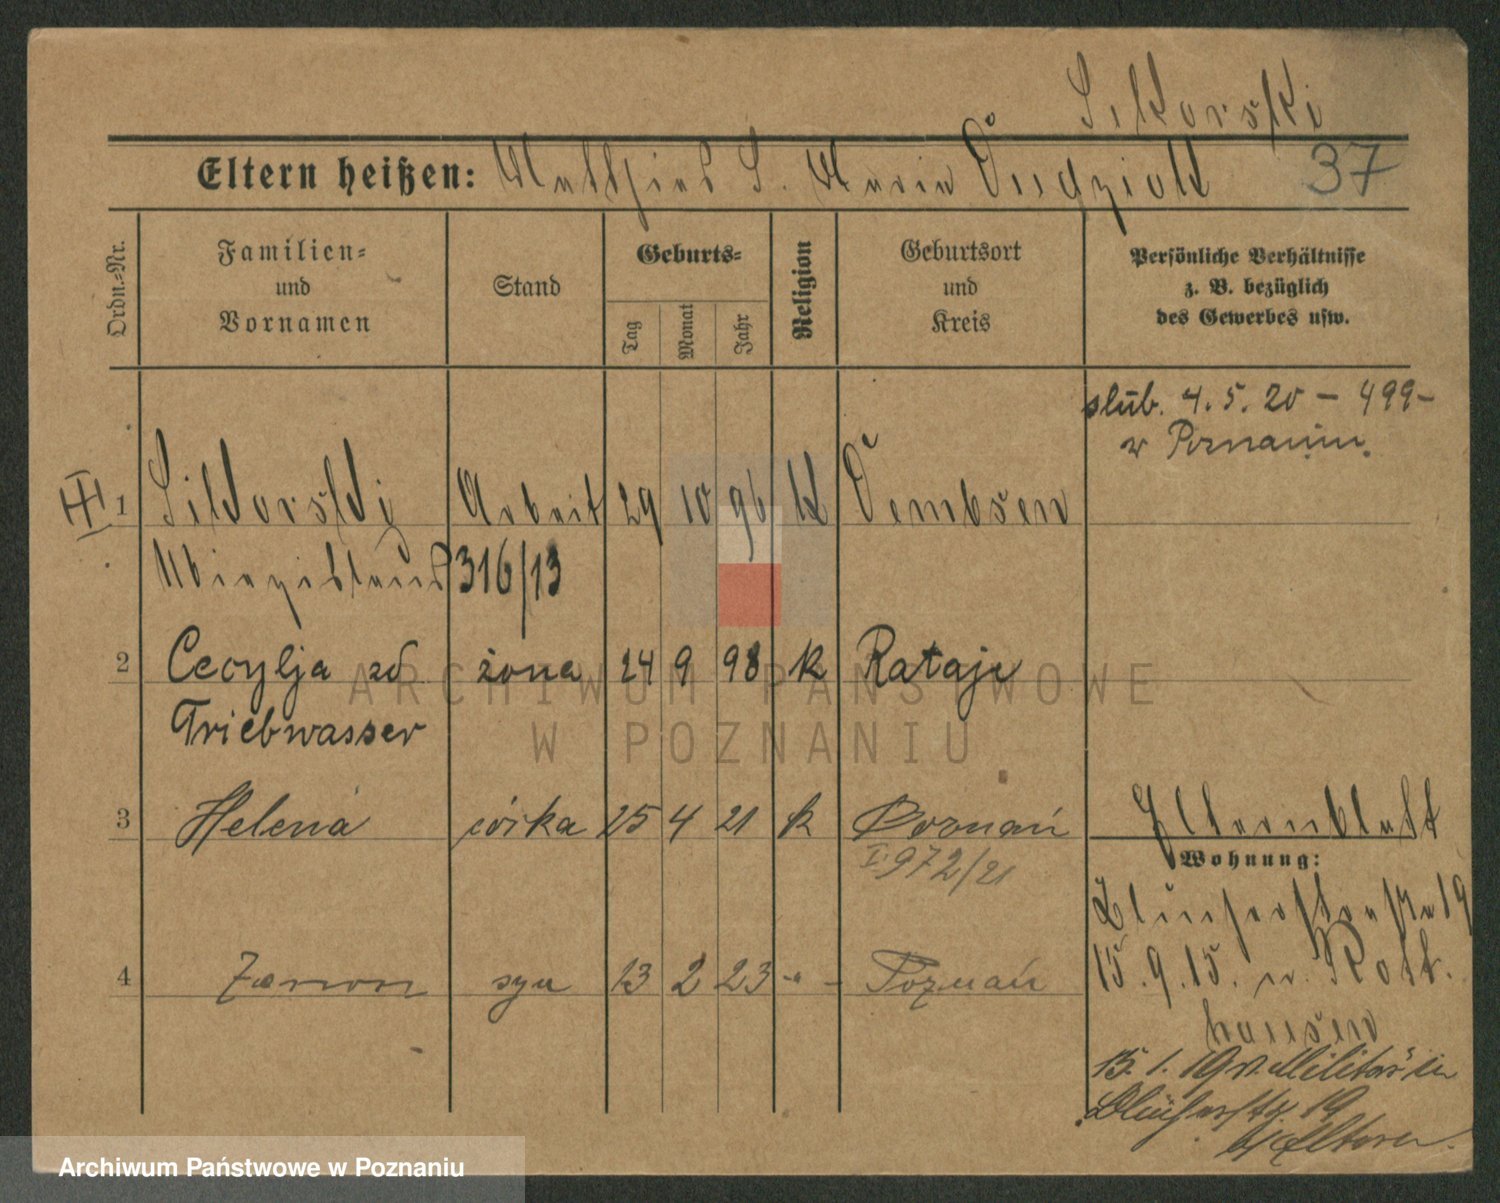 Sikorski
Eltern heißen: Matthias S. Maria Dudziak 37
Ordn.-Nr.
Familien-
und
Vornamen
Stand
Geburts-
Tag
Monat
Jahr
Religion
Geburtsort
und
Kreis
Persönliche Verhältnisse
z. B. bezüglich
des Gewerbes usw.
slub. 4.5.20 – 499–
w Poznaniu.
1 Sikorski Arbeit 29 10 96 K Dembsen
Miezislaus 316/13
2 Cecylja zd żona 24 9 98 k Rataje
Triebwasser
3 Helena córka 25 4 21 k Poznań
I 972/21
Elternblatt
Wohnung:
Blücherstraße 19
15.9.15. n. Rott-
hausen
4 Zenon syn 13 2 23 -"- Poznań
15.1.19 v. Militär in
Blücherstr. 19
b/ Eltern.
ARCHIWUM PAŃSTWOWE
W POZNANIU
Archiwum Państwowe w Poznaniu